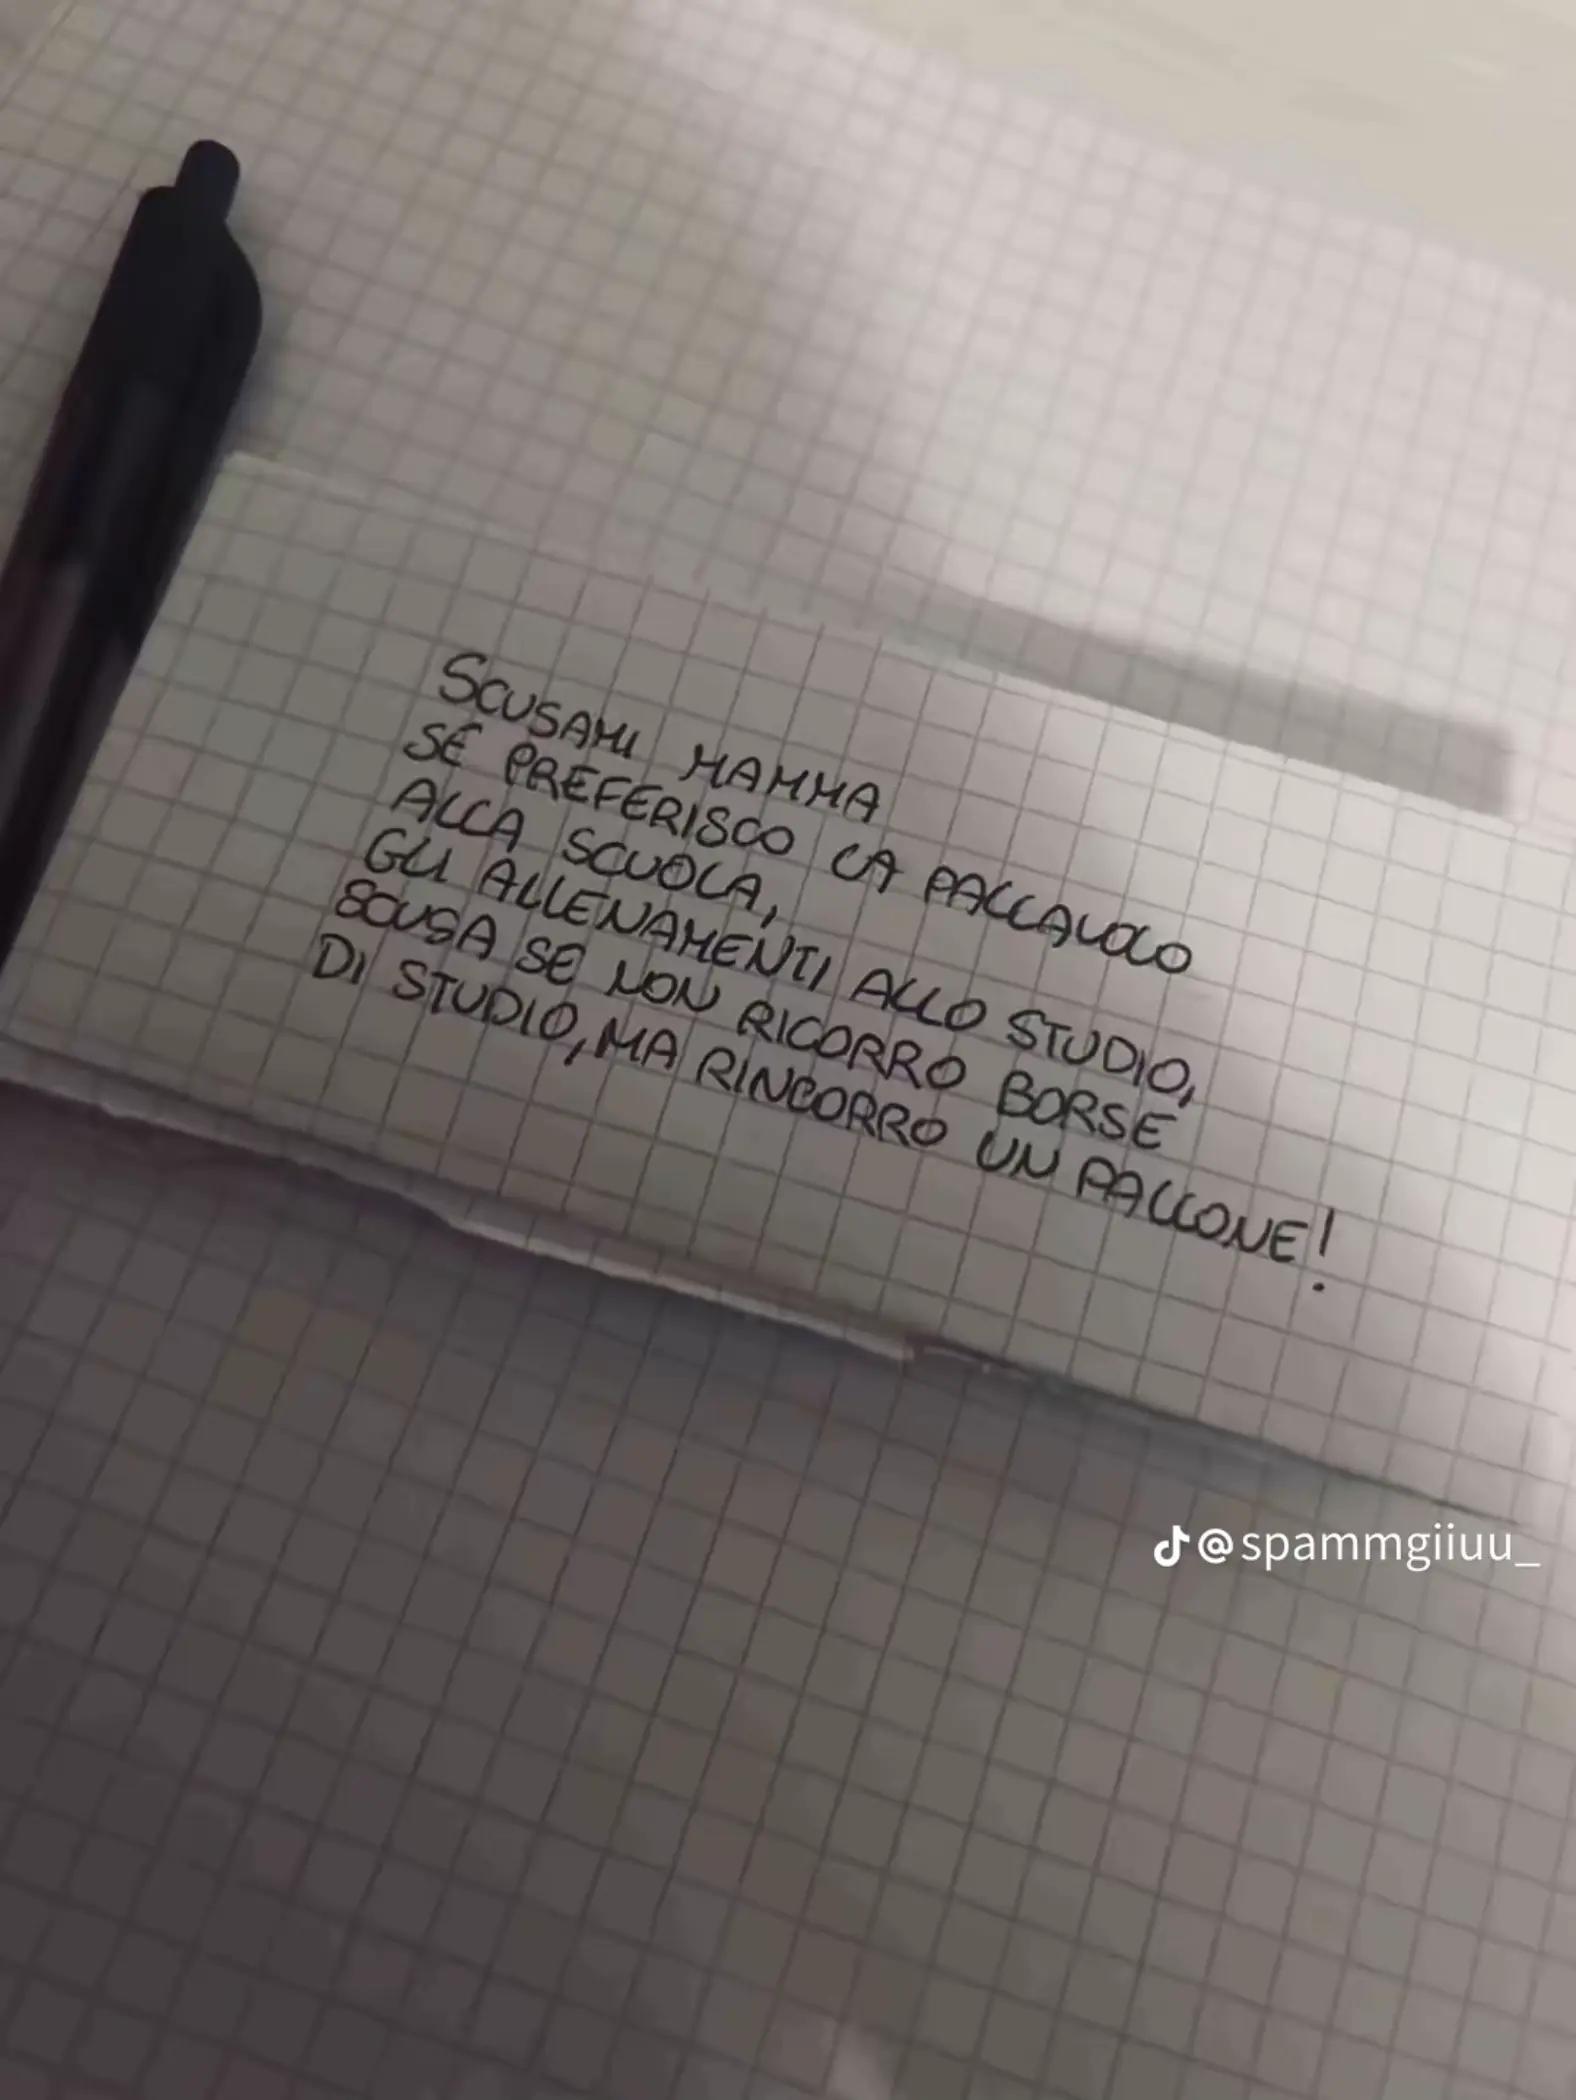 SCUSAMI MAMMA
SE PREFERISCO LA PALLAVOLO
ALLA SCUOLA,
GLI ALLENAMENTI ALLO STUDIO,
SCUSA SE NON RICORRO BORSE
DI STUDIO, MA RINCORRO UN PALLONE!
@spammgiiuu_